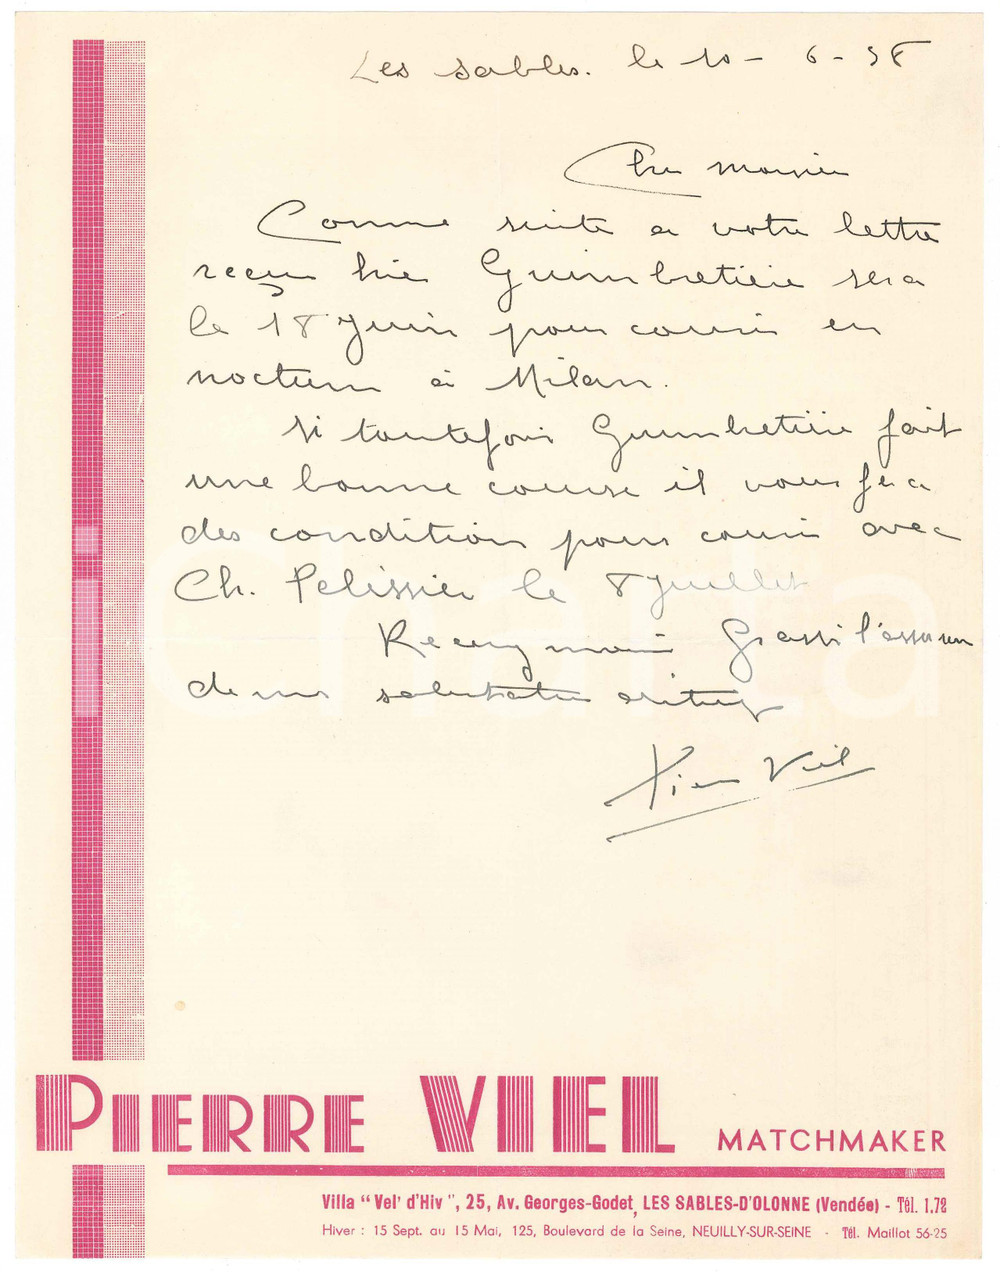 Les Sables. le 10 - 6 - 38
Cher monsieur
Comme suite a votre lettre
reçu hier Guimbretière sera
le 18 Juin pour courir en
nocturne à Milan.
Si toutefois Guimbretière fait
une bonne course il vous fera
des condition pour courir avec
Ch. Pelissier le 8 Juillet
Recevez Grassi l'assurance
de mes salutations
Pierre Viel
PIERRE VIEL MATCHMAKER
Villa "Vel' d'Hiv", 25, Av. Georges-Godet, LES SABLES-D'OLONNE (Vendée) - Tél. 1.72
Hiver : 15 Sept. au 15 Mai, 125, Boulevard de la Seine, NEUILLY-SUR-SEINE - Tél. Maillot 56-25
Charta